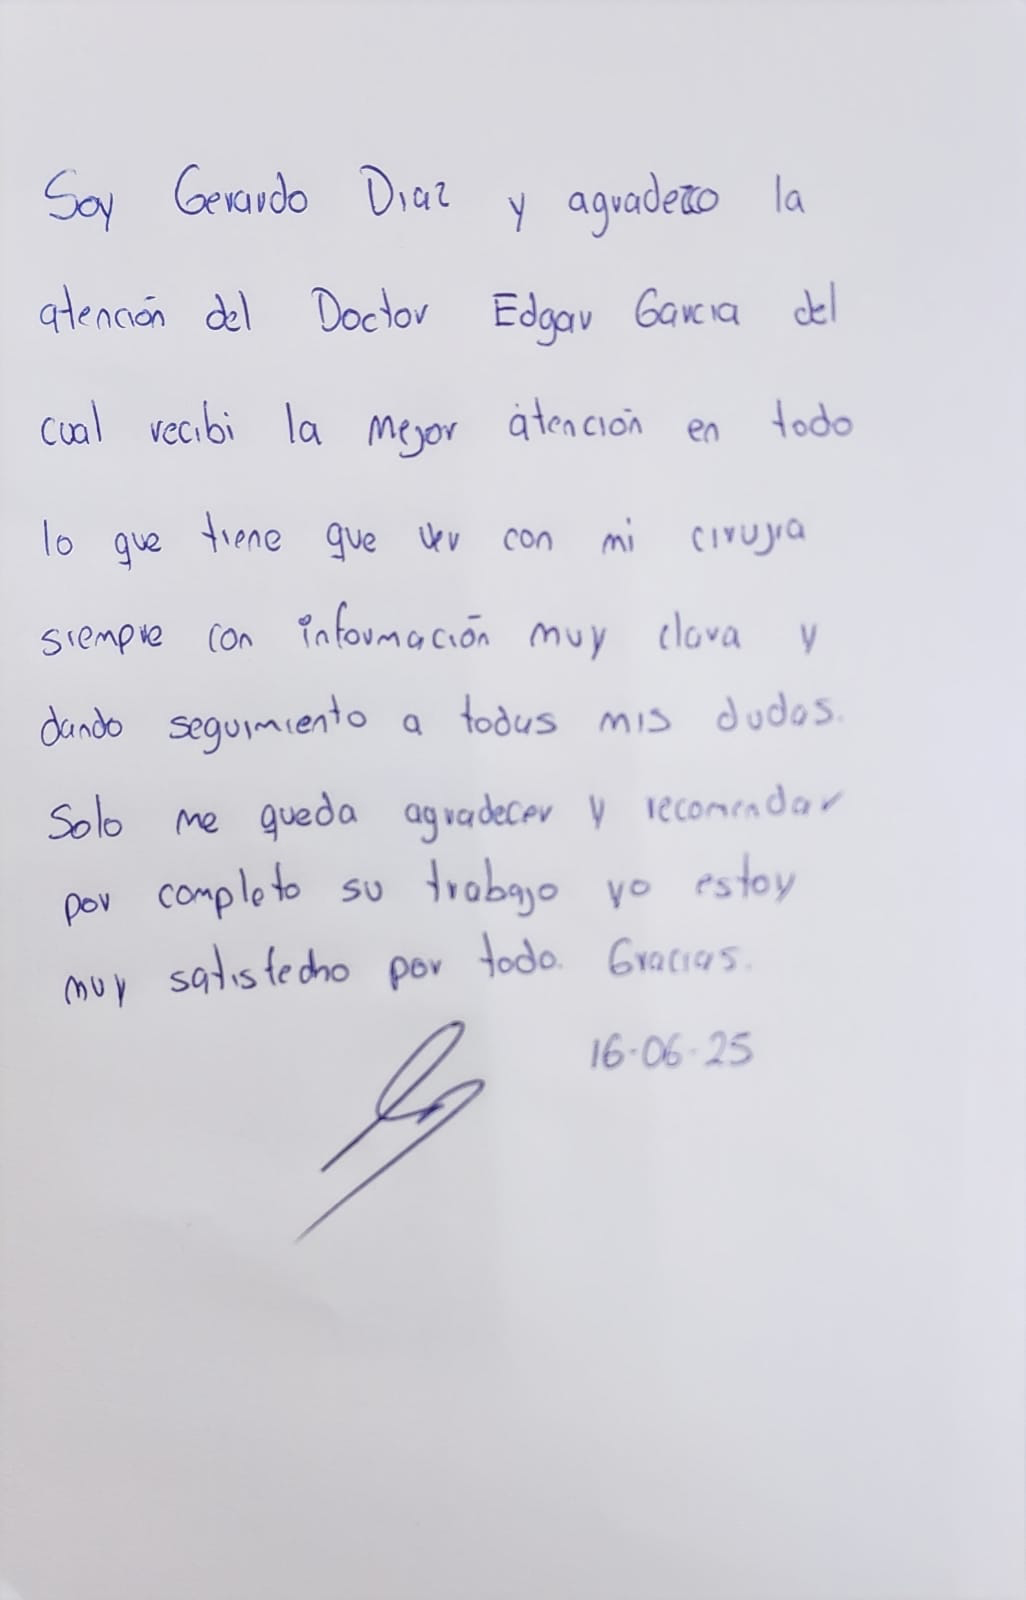 Soy Gerardo Diaz y agradezco la
atención del Doctor Edgar Garcia del
cual recibi la mejor atención en todo
lo que tiene que ver con mi cirujia
siempre con información muy clara y
dando seguimiento a todas mis dudas.
Solo me queda agradecer y recomendar
por completo su trabajo yo estoy
muy satisfecho por todo. Gracias.
16-06-25